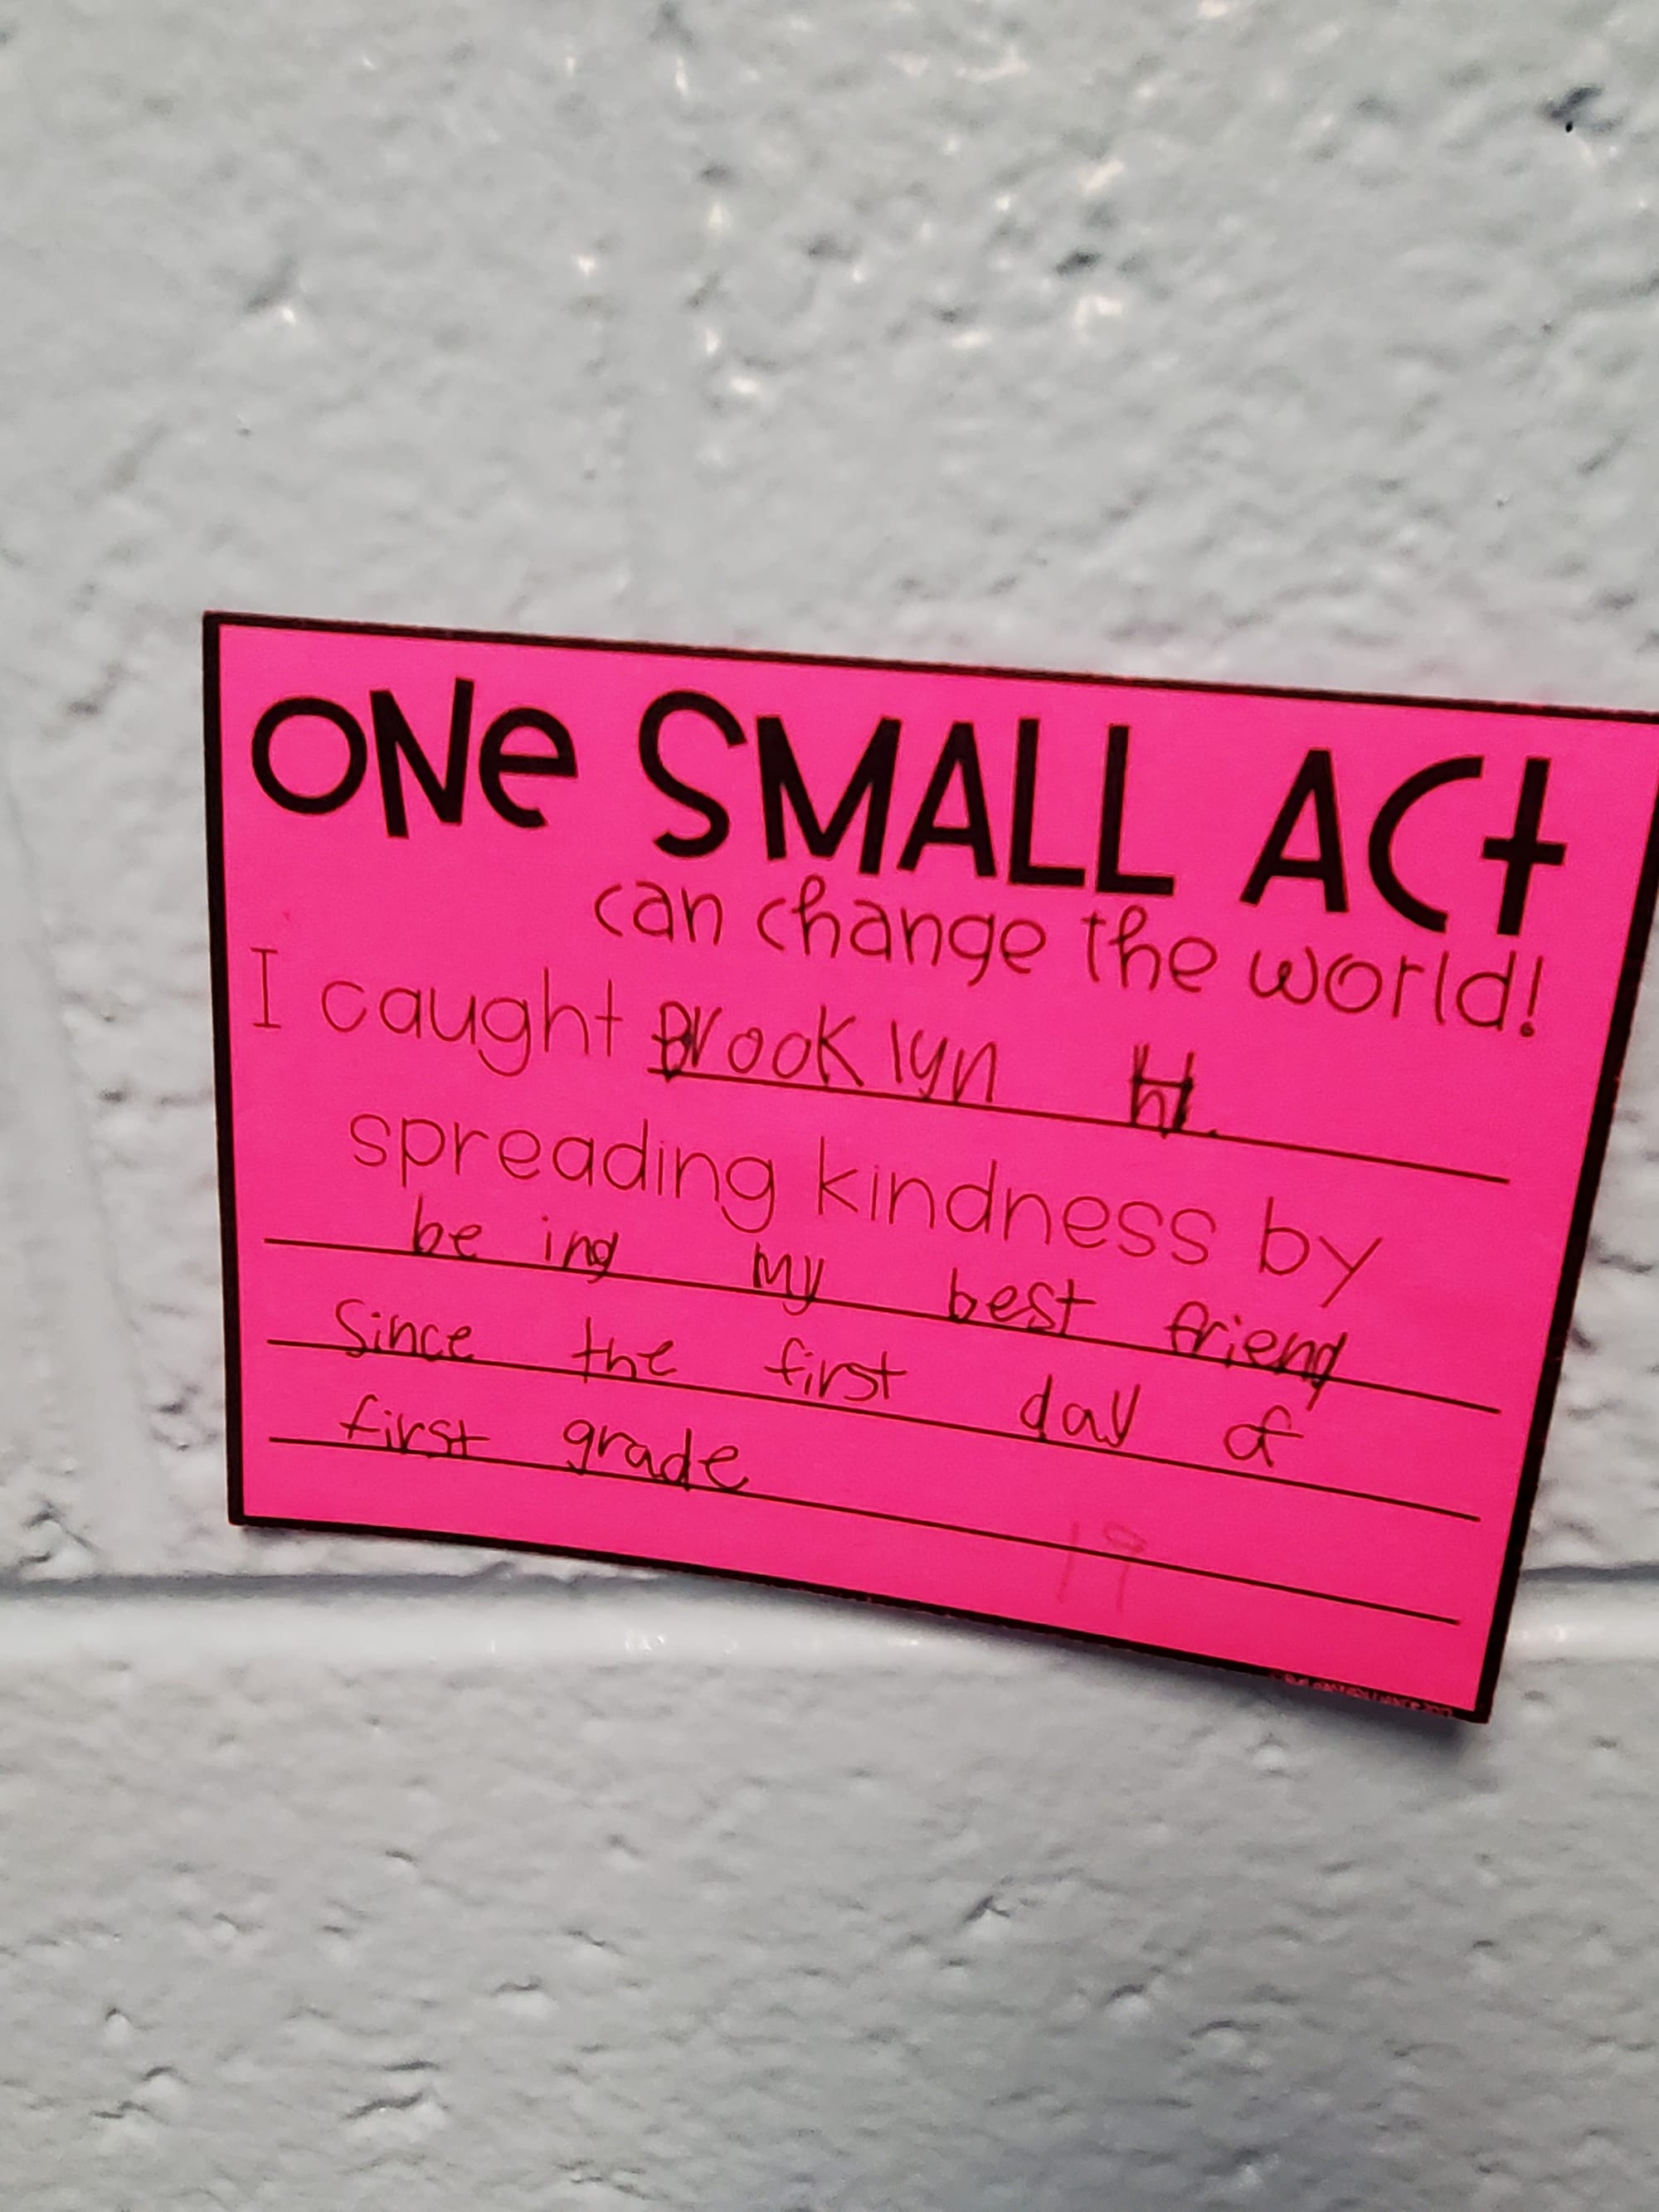 ONe SMALL ACt
can change the world!
I caught Brooklyn H.
spreading kindness by
be ing my best friend
Since the first day of
first grade
19